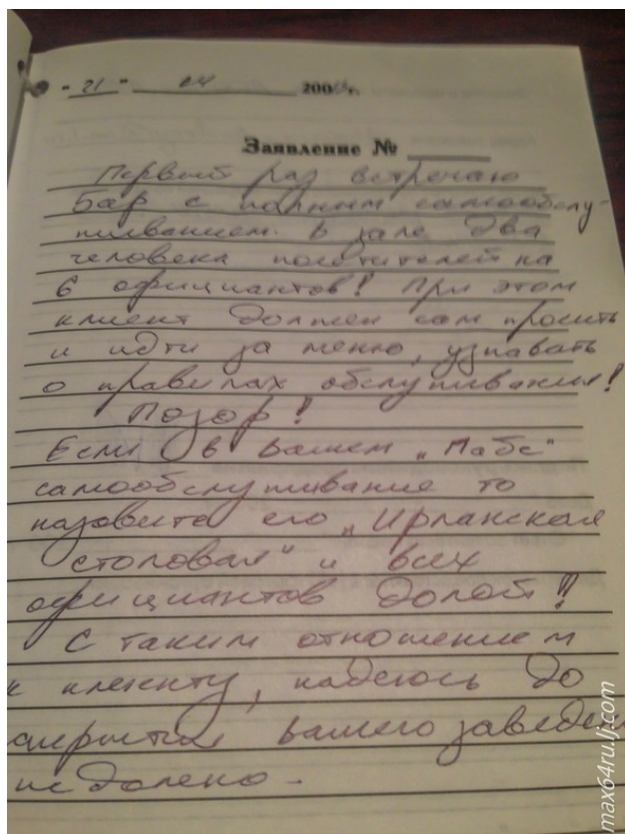 "21" 04 200 г.
Заявление № ____
Первый раз встречаю
Бар с полным самообслу-
живанием. В зале два
человека посетителей на
6 официантов! При этом
клиент должен сам просить
и идти за меню, узнавать
о правилах обслуживания!
Позор!
Если в вашем „Пабе"
самообслуживание то
назовите его „Ирланская
столовая" и всех
официантов долой!!
С таким отношением
к клиенту, надеюсь до
закрытия вашего заведен
не далеко.
max64ru.lj.com